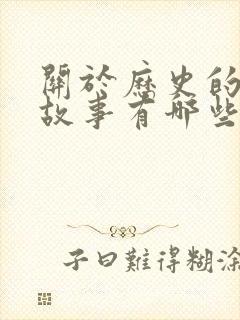 關於歷史的
故事有哪些
子曰難得糊涂